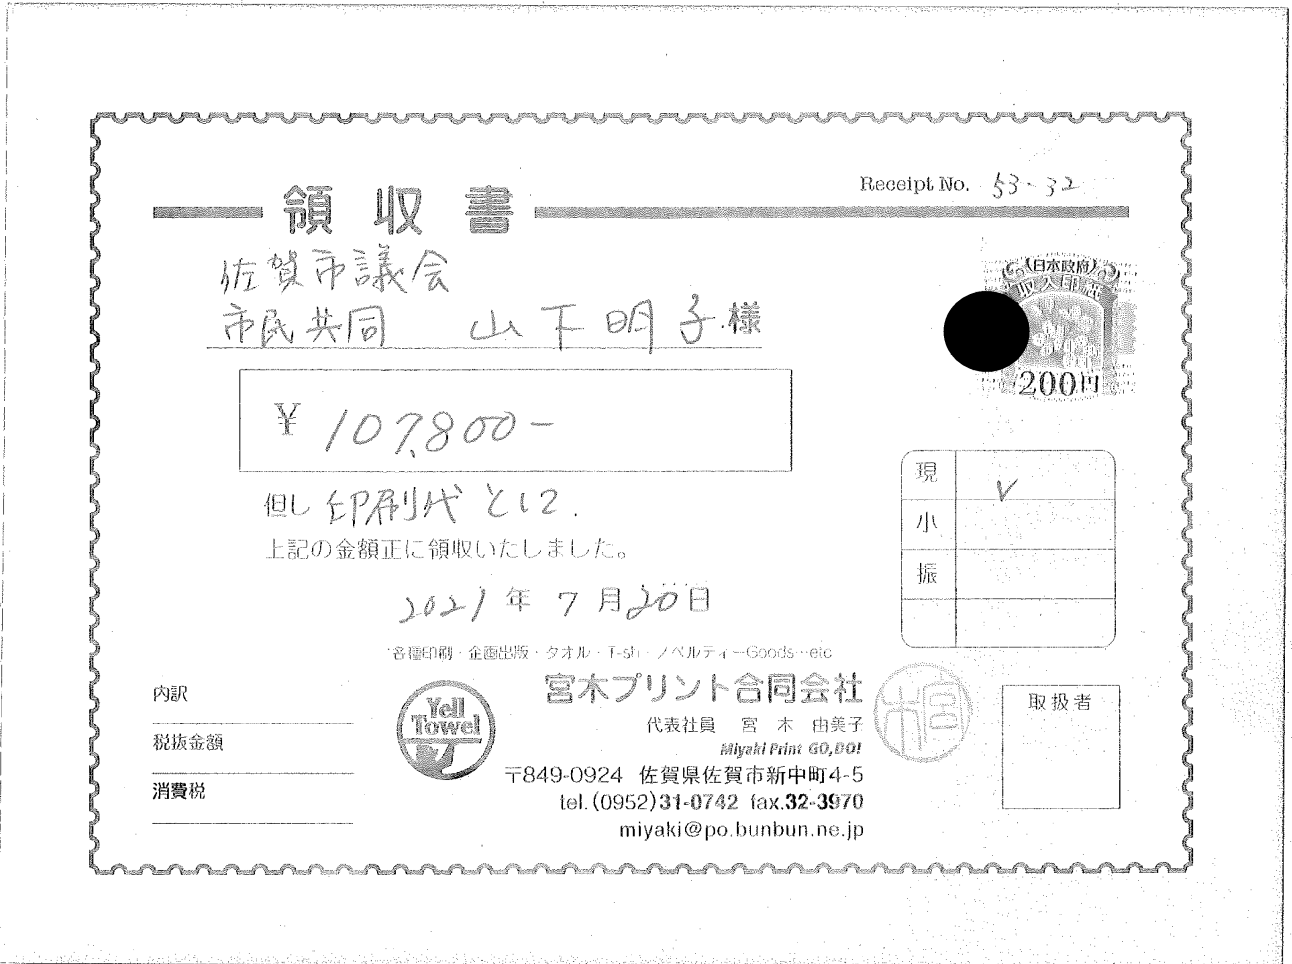 Receipt No. 53-32
領収書
佐賀市議会
市民共同 山下明子様
(日本政府)
収入印紙
200円
¥ 107,800-
但し 印刷代として.
上記の金額正に領収いたしました。
2021年 7月20日
現 ✓
小
振
各種印刷・企画出版・タオル・T-sh・ノベルティーGoods…etc
内訳
税抜金額
消費税
Yell
Towel
宮木プリント合同会社
代表社員 宮木 由美子
Miyaki Print GO,DO!
〒849-0924 佐賀県佐賀市新中町4-5
tel.(0952)31-0742 fax.32-3970
miyaki@po.bunbun.ne.jp
宮木
取扱者